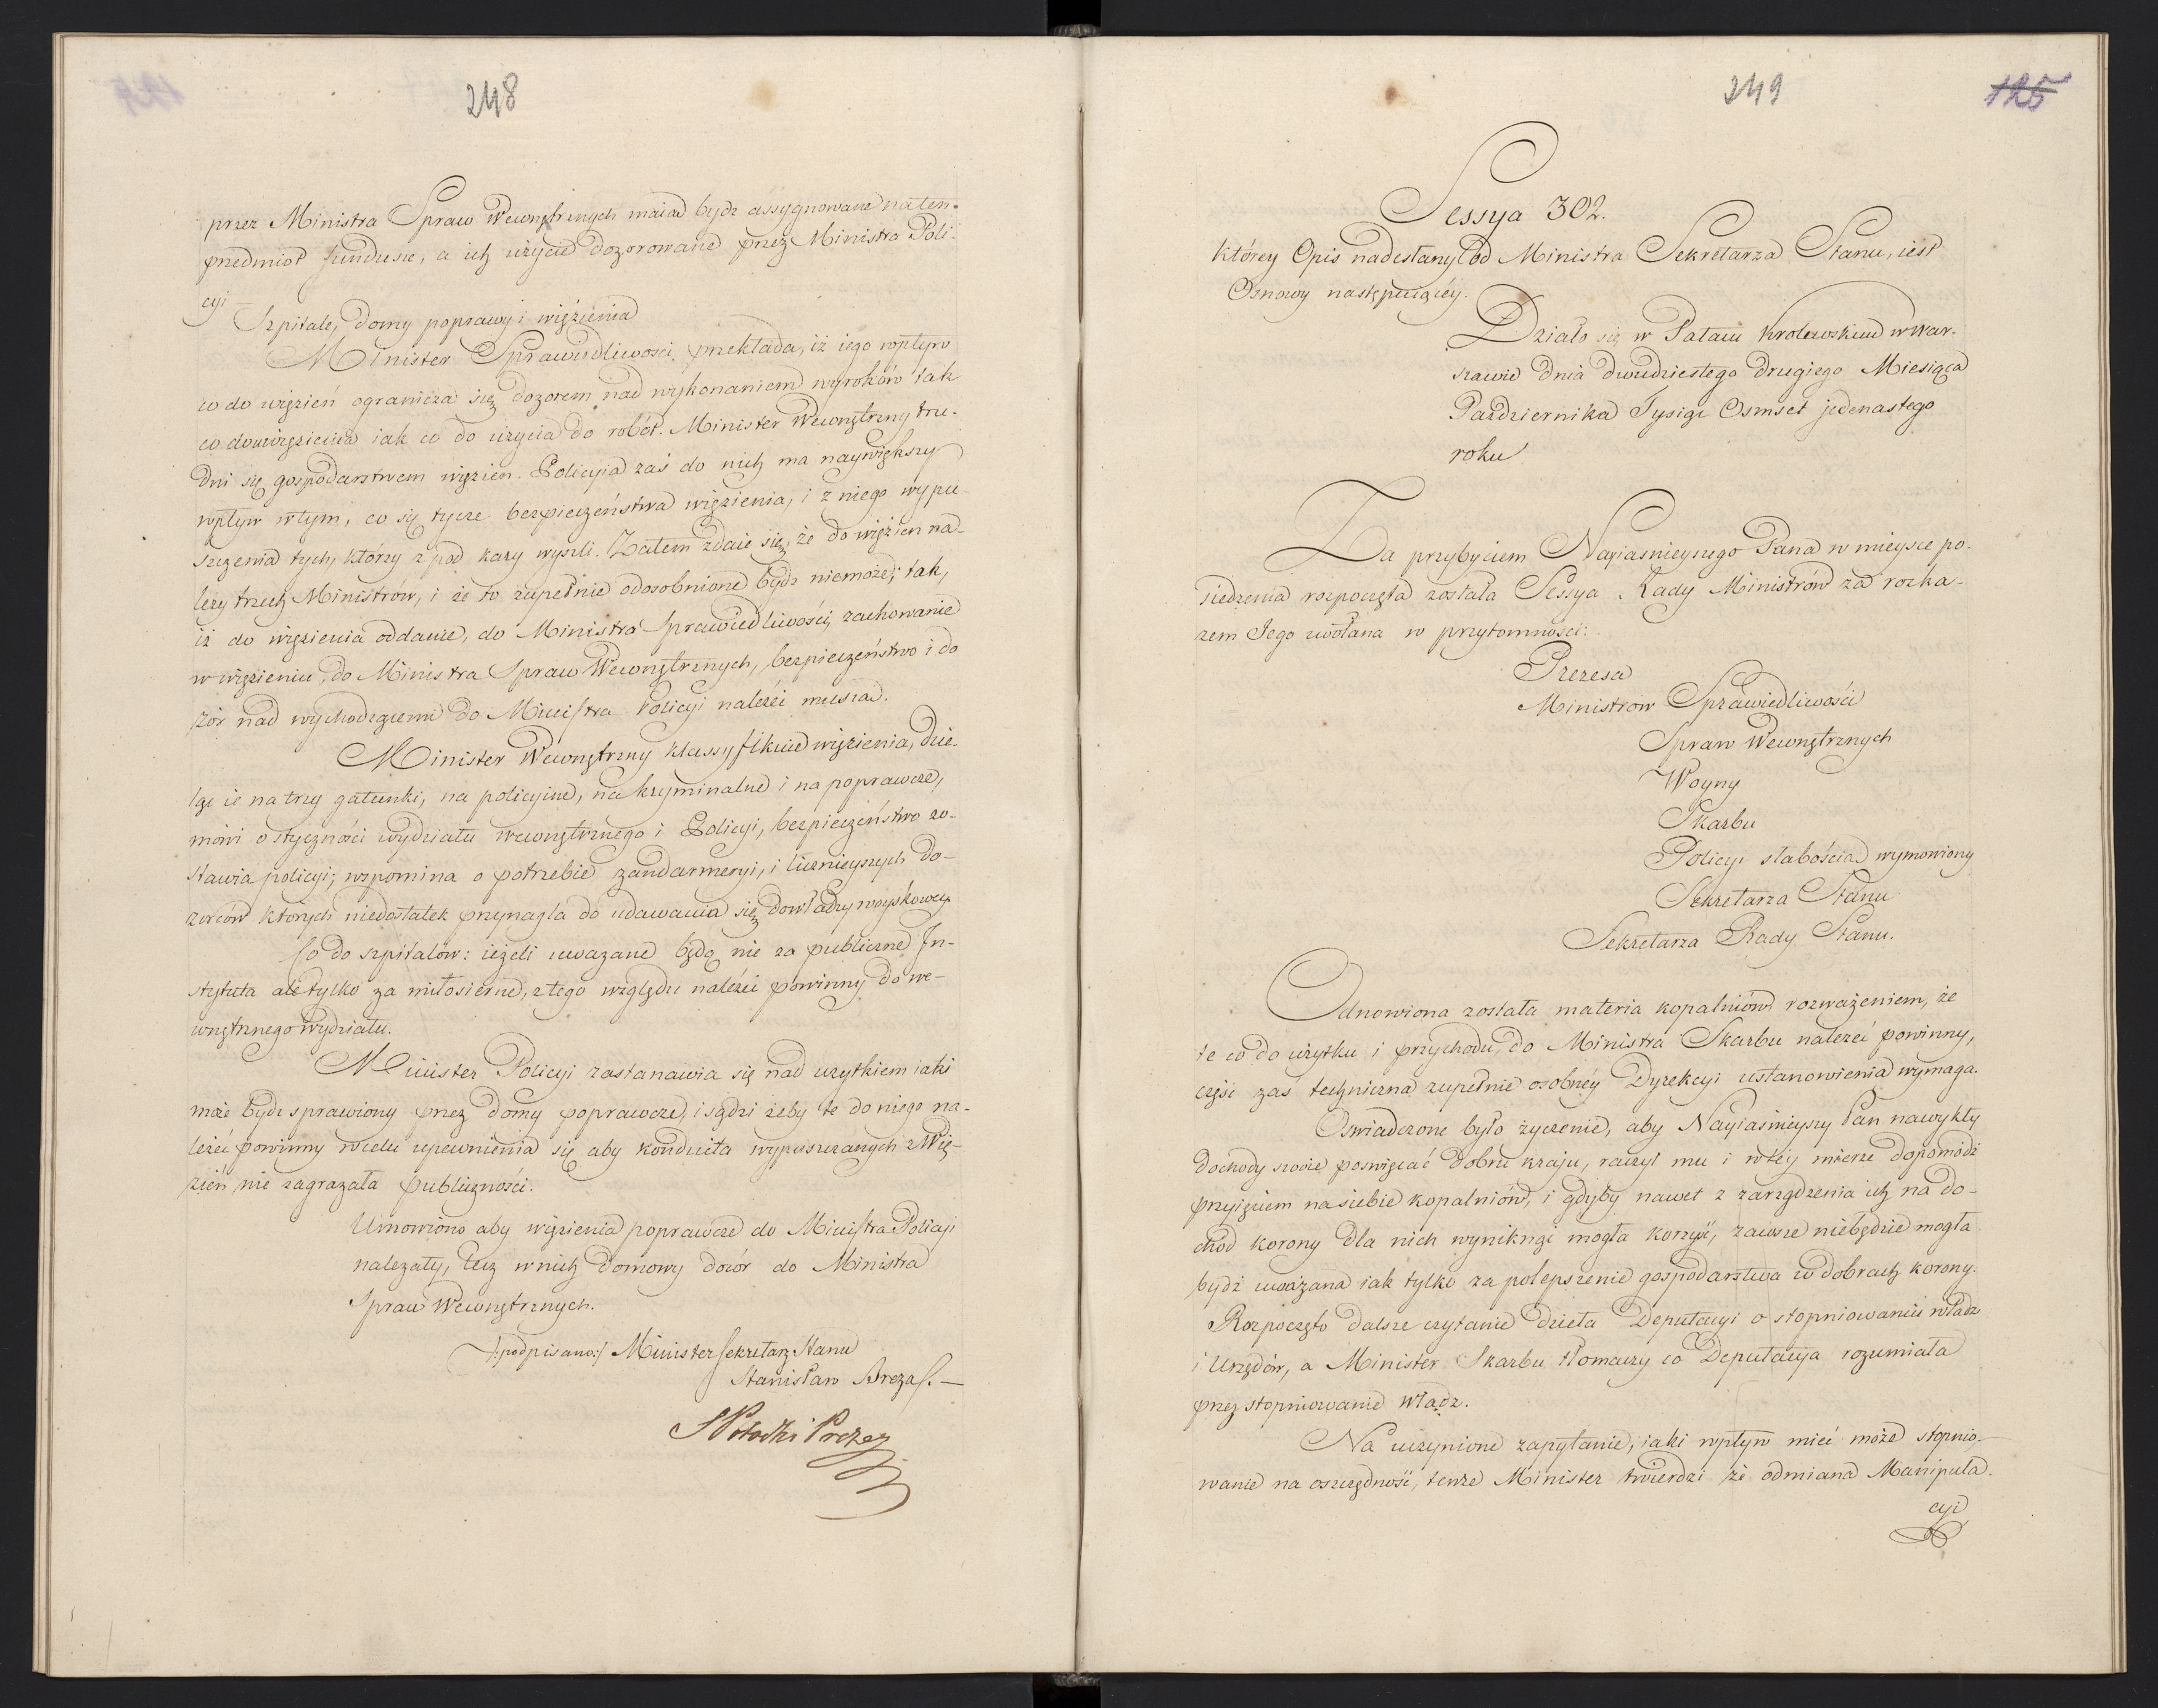 248
przez Ministra Spraw Wewnętrznych maią bydź assygnowane na ten
przedmiot fundusze, a ich użycie dozorowane przez Ministra Poli-
cyi —
Szpitale, domy poprawy i więzienia
Minister Sprawiedliwosci przekłada, iż iego wpływ
co do więzień ogranicza się dozorem nad wykonaniem wyroków tak
co do uwięzienia iak co do użycia do robót. Minister Wewnętrzny tru-
dni się gospodarstwem więzien. Policyia zaś do nich ma naywiększy
wpływ w tym, co się tycze bezpieczeństwa więzienia, i z niego wypu-
szczenia tych, którzy z pod kary wyszli. Zatem zdaie się, że do więzien na-
leży trzech Ministrów, i że to zupełnie odosobnione bydź niemoże; tak,
iż do więzienia oddanie, do Ministra Sprawiedliwości, zachowanie
w więzieniu, do Ministra Spraw Wewnętrznych, bezpieczeństwo i do
zór nad wychodzącemi do Ministra Policyi należéć musiał.
Minister Wewnętrzny klassyfikuie więzienia, dzie-
ląc ie na trzy gatunki, na policyine, na kryminalne i na poprawcze,
mówi o styczności wydziału wewnętrznego i Policyi, bezpieczeństwo zo-
stawia policyi; wspomina o potrzebie żandarmeryi, i licznieyszych do-
zorców których niedostatek przynagla do udawania się do władzy woyskowey.
Co do szpitalów: ieżeli uwazane będą nie za publiczne In-
stytuta ale tylko za miłosierne, z tego względu należéć powinny do we-
wnętrznego wydziału.
Minister Policyi zastanawia się nad użytkiem iaki
może bydź sprawiony przez domy poprawcze, i sądzi żeby te do niego na-
leżéć powinny w celu upewnienia się aby konduita wypuszczanych z Wię-
zień nie zagrażała publiczności.
Umowiono aby więzienia poprawcze do Ministra Policyi
należały, lecz w nich domowy dozór do Ministra
Spraw Wewnętrznych.
/:podpisano:/ Minister Sekretarz Stanu
Stanisław Breza/. —
S Potocki Prezes
249
125
Sessya 302.
którey Opis nadesłany od Ministra Sekretarza Stanu, iest
Osnowy następuiącéy.
Działo się w Pałacu Krolewskim w War-
szawie dnia dwudziestego drugiego Miesiąca
Pazdziernika Tysiąc Osmset jedenastego
roku
Za przybyciem Nayiasnieyszego Pana w mieysce po-
siedzenia rozpoczęta została Sessya Rady Ministrów za rozka-
zem Jego zwołana w przytomności:
Prezesa
Ministrow Sprawiedliwości
Spraw Wewnętrznych
Woyny
Skarbu
Policyi słabością wymowiony
Sekretarza Stanu
Sekretarza Rady Stanu.
Odnowiona została materia kopalniów rozważeniem, że
te co do użytku i przychodu, do Ministra Skarbu należéć powinny,
część zaś techniczna zupełnie osobnéy Dyrekcyi ustanowienia wymaga.
Oswiadczone było życzenie, aby Nayiaśnieyszy Pan nawykły
dochody swoie poswięcać dobru kraiu, raczył mu i w téy mierze dopomódz
przyięciem na siebie kopalniów, i gdyby nawet z zarządzenia ich na do-
chod korony dla nich wyniknąć mogła korzyść, zawsze niebędzie mogła
bydź uważana iak tylko za polepszenie gospodarstwa w dobrach korony.
Rozpoczęto dalsze czytanie dzieła Deputacyi o stopniowaniu władz
i Urzędów, a Minister Skarbu tłomaczy co Deputacya rozumiała
przez stopniowanie władz.
Na uczynione zapytanie, iaki wpływ mieć może stopnio-
wanie na oszczędność, tenże Minister twierdzi że odmiana Manipula-
cyi